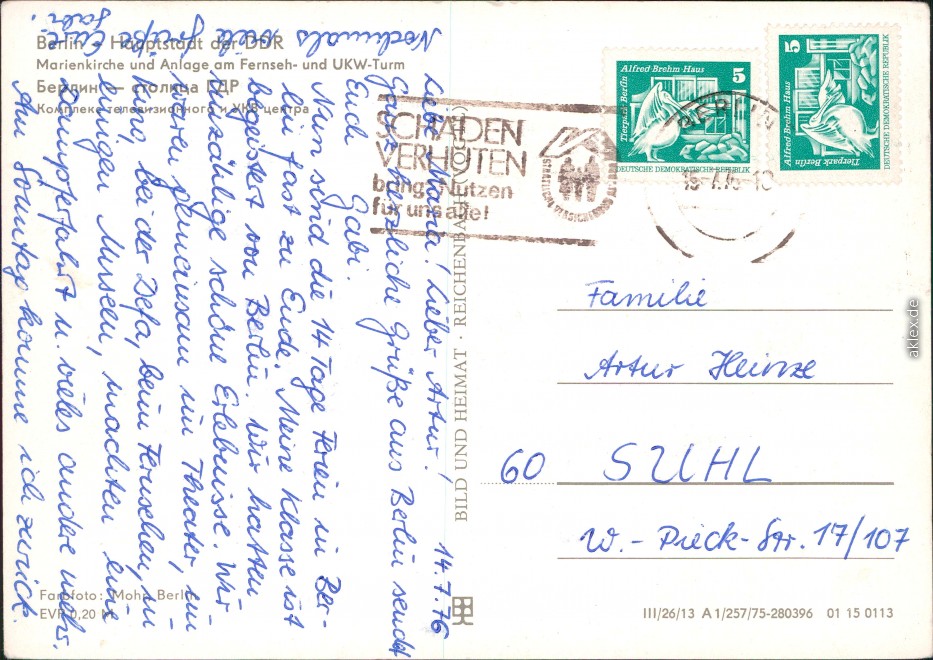 Berlin – Hauptstadt der DDR
Marienkirche und Anlage am Fernseh- und UKW-Turm
Берлин — столица ГДР
Комплекс телевизионного и УКВ-центра
14.7.76
Liebe Maria! Lieber Artur!
Ganz herzliche Grüße aus Berlin sendet
Euch Gabi.
Nun sind die 14 Tage Ferien in Ber-
lin fast zu Ende. Meine Klasse ist
begeistert von Berlin. Wir hatten
unzählige schöne Erlebnisse. Wir
waren gemeinsam im Theater, im
Kino, bei der Defa, beim Fernsehen, in
einigen Museen, machten eine
Dampferfahrt u. vieles andere mehr.
Am Sonntag komme ich zurück.
Nochmals viele Grüße Eure
Gabi.
Farbfoto: Mohr, Berlin
EVP 0,20 M
BILD UND HEIMAT · REICHENBACH (VOGTL)
SCHÄDEN
VERHÜTEN
bringt Nutzen
für uns alle!
STAATLICHE VERSICHERUNG DER DDR
BERLIN
Alfred-Brehm-Haus
5
Tierpark Berlin
DEUTSCHE DEMOKRATISCHE REPUBLIK
5
Alfred-Brehm-Haus
Tierpark Berlin
DEUTSCHE DEMOKRATISCHE REPUBLIK
Familie
Artur Heinze
60 SUHL
W.-Pieck-Str. 17/107
III/26/13 A1/257/75-280396 01 15 0113
aklex.de